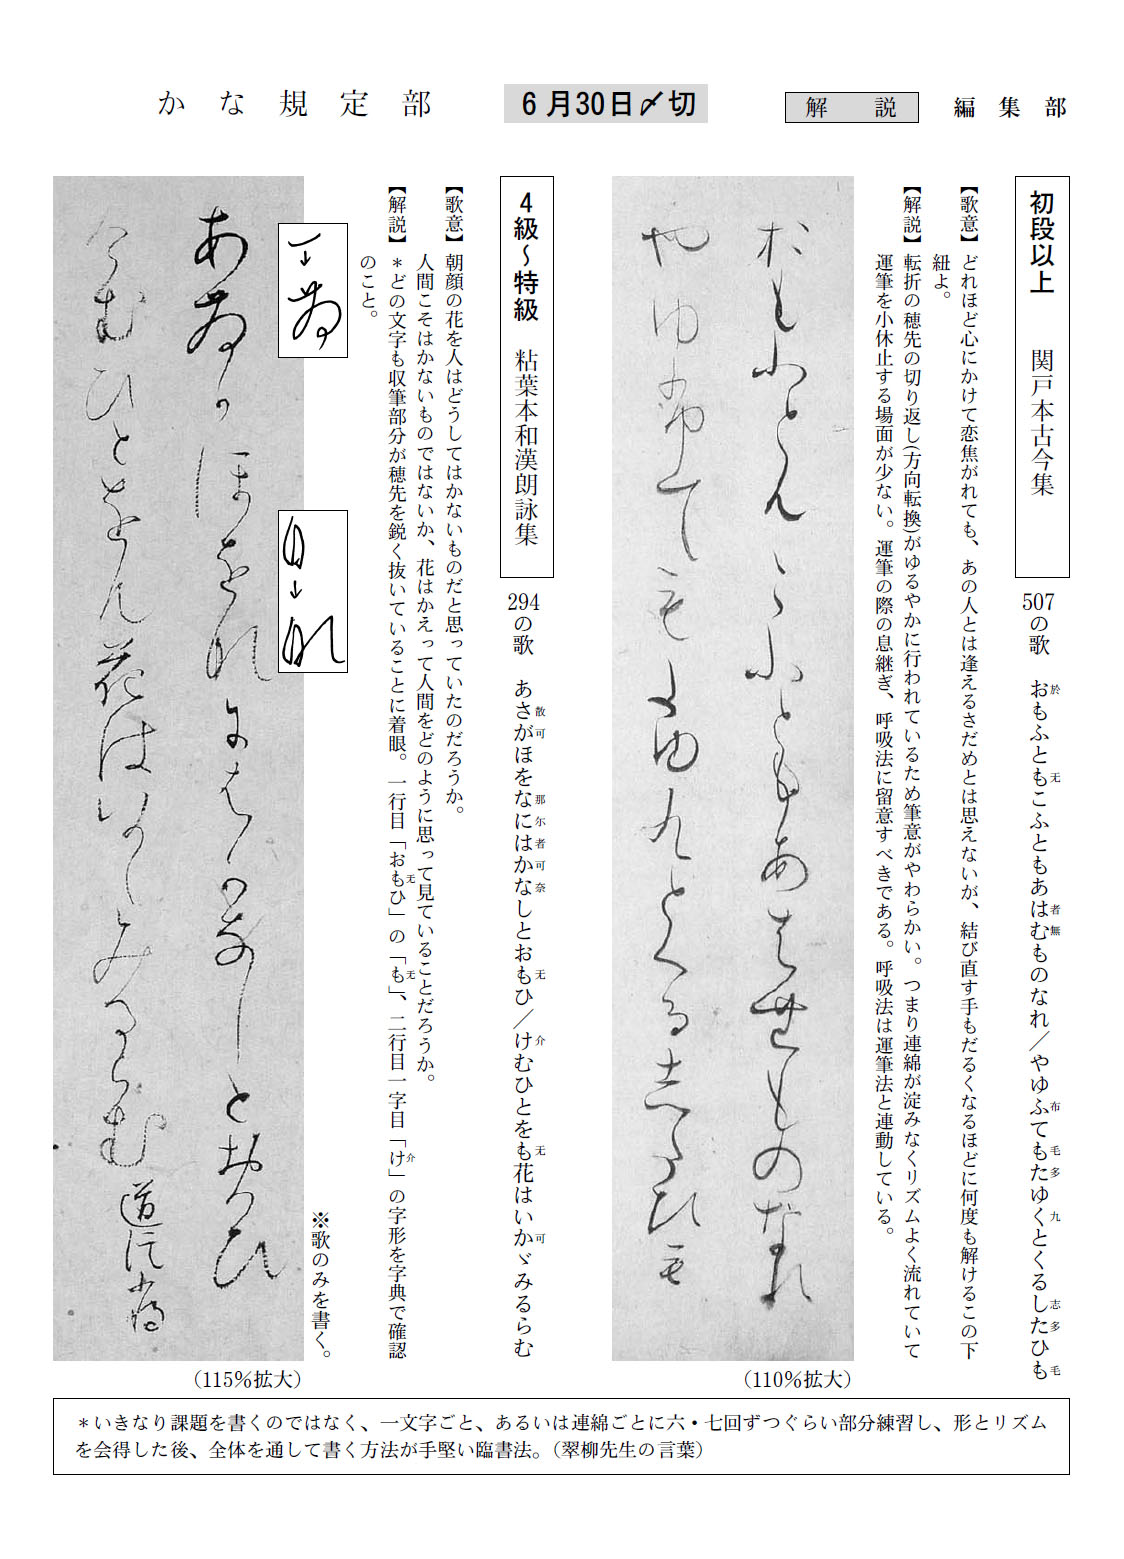 かな規定部
6月30日〆切
解説
編集部
初段以上　関戸本古今集
507の歌　おもふともこふともあはむものなれ／やゆふてもたゆくとくるしたひも
於　无　者無　布　毛多　九　志多　毛
【歌意】どれほど心にかけて恋焦がれても、あの人とは逢えるさだめとは思えないが、結び直す手もだるくなるほどに何度も解けるこの下
紐よ。
【解説】転折の穂先の切り返し(方向転換)がゆるやかに行われているため筆意がやわらかい。つまり連綿が淀みなくリズムよく流れていて
運筆を小休止する場面が少ない。運筆の際の息継ぎ、呼吸法に留意すべきである。呼吸法は運筆法と連動している。
(110％拡大)
4級～特級　粘葉本和漢朗詠集
294の歌　あさがほをなにはかなしとおもひ／けむひとをも花はいかゞみるらむ
散可　那尓者可奈　无　介　无　可
【歌意】朝顔の花を人はどうしてはかないものだと思っていたのだろうか。
人間こそはかないものではないか、花はかえって人間をどのように思って見ていることだろうか。
【解説】＊どの文字も収筆部分が穂先を鋭く抜いていることに着眼。一行目「おもひ」の「も」、二行目一字目「け」の字形を字典で確認
无　无　介
のこと。
※歌のみを書く。
(115％拡大)
＊いきなり課題を書くのではなく、一文字ごと、あるいは連綿ごとに六・七回ずつぐらい部分練習し、形とリズム
を会得した後、全体を通して書く方法が手堅い臨書法。(翠柳先生の言葉)